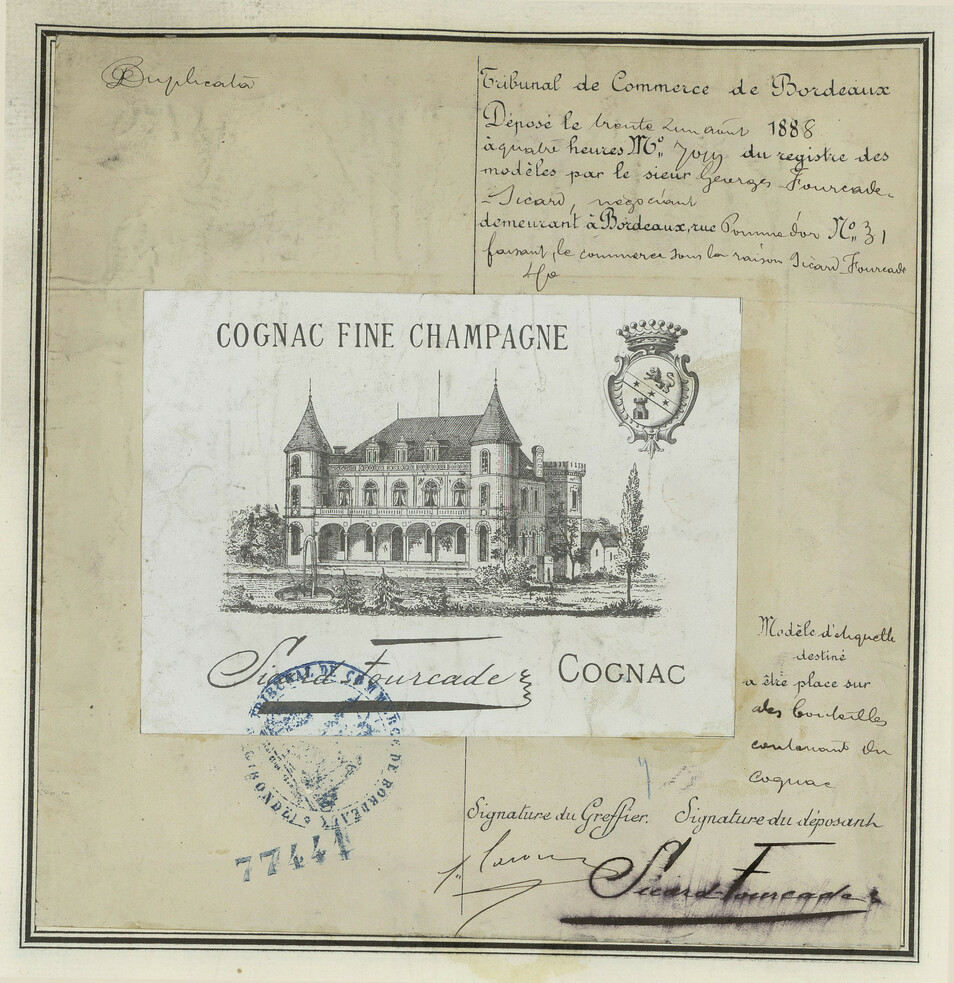 Duplicata
Tribunal de Commerce de Bordeaux
Déposé le trente un août 1888
à quatre heures Nº du registre des
modèles par le sieur Georges Fourcade-
-Sicard, négociant
demeurant à Bordeaux, rue Pomme d'or Nº 31
faisant le commerce sous la raison Sicard-Fourcade
COGNAC FINE CHAMPAGNE
Sicard-Fourcade
COGNAC
Modèle d'étiquette
destiné
a être place sur
des bouteilles
contenant du
cognac
TRIBUNAL DE COMMERCE DE BORDEAUX
GIRONDE
77441
Signature du Greffier. Signature du déposant
Sicard-Fourcade